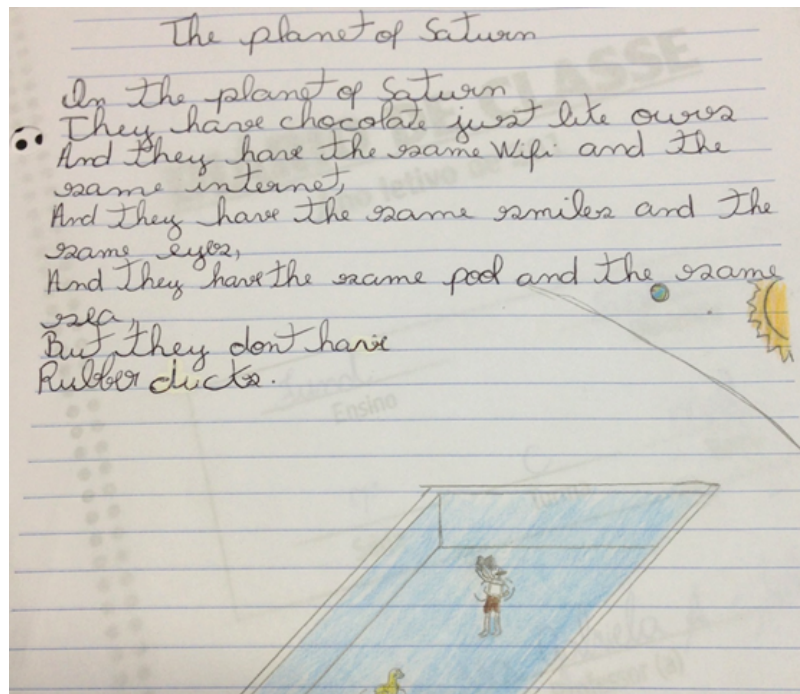 The planet of Saturn
In the planet of Saturn
They have chocolate just like ours
And they have the same Wifi and the
same internet,
And they have the same smiles and the
same eyes,
And they have the same pool and the same
sea,
But they dont have
Rubber ducks.
Ensino